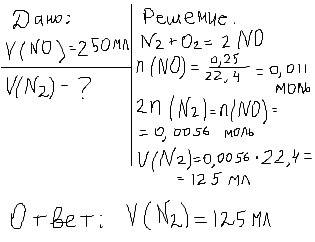 Дано:
V(NO)=250мл
V(N₂)-?
Решение.
N₂+O₂=2NO
n(NO)=0,25/22,4=0,011
моль
2n(N₂)=n(NO)=
=0,0056 моль
V(N₂)=0,0056·22,4=
=125 мл
Ответ: V(N₂)=125мл